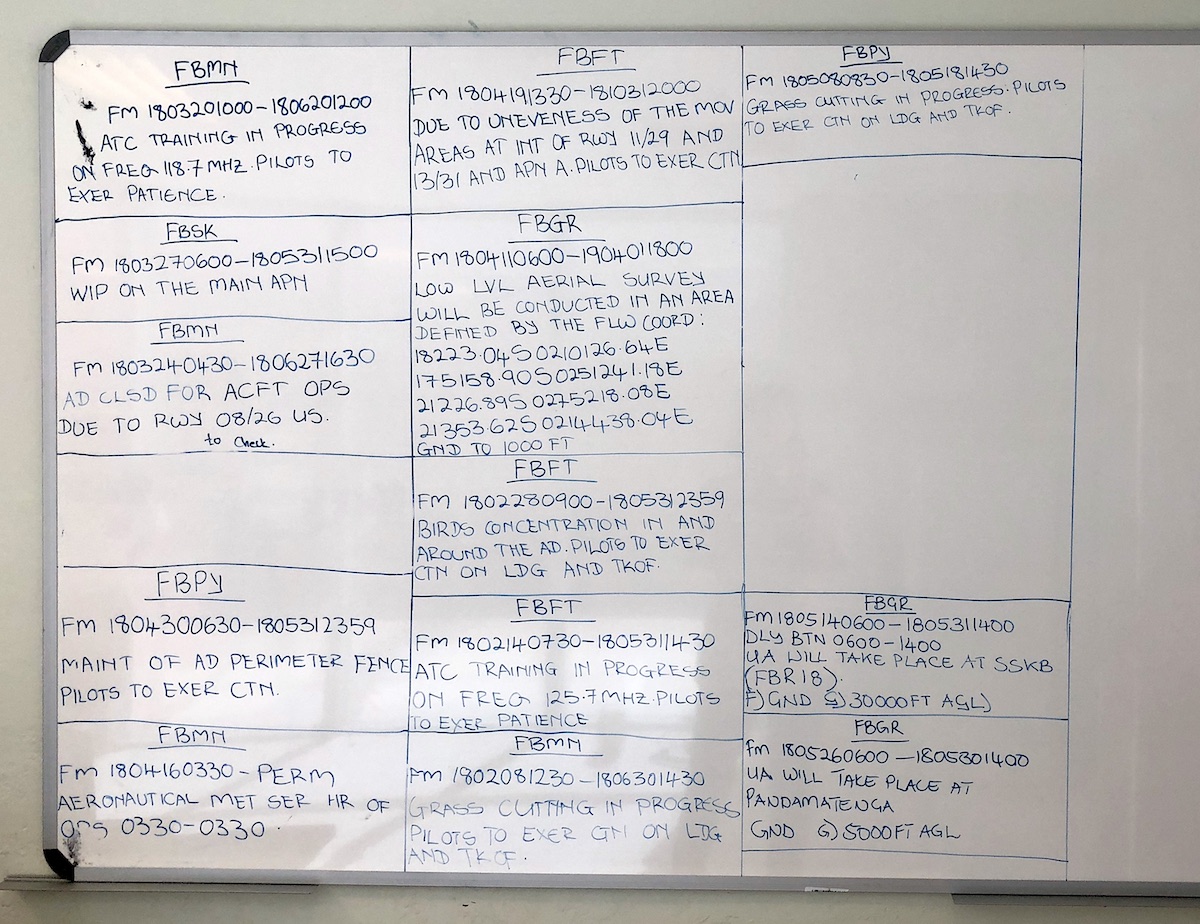 FBMN
FM 1803201000-1806201200
ATC TRAINING IN PROGRESS
ON FREQ 118.7 MHZ.PILOTS TO
EXER PATIENCE.
FBSK
FM 1803270600-1805311500
WIP ON THE MAIN APN
FBMN
FM 1803240430-1806271630
AD CLSD FOR ACFT OPS
DUE TO RWY 08/26 US.
to check.
FBPY
FM 1804300630-1805312359
MAINT OF AD PERIMETER FENCE
PILOTS TO EXER CTN.
FBMN
FM 1804160330-PERM
AERONAUTICAL MET SER HR OF
OPS 0330-0330.
FBFT
FM 1804191330-1810312000
DUE TO UNEVENESS OF THE MOV
AREAS AT INT OF RWY 11/29 AND
13/31 AND APN A.PILOTS TO EXER CTN
FBGR
FM 1804110600-1904011800
LOW LVL AERIAL SURVEY
WILL BE CONDUCTED IN AN AREA
DEFINED BY THE FLW COORD:
18223.04S 0210126.64E
175158.90S 0251241.18E
21226.89S 0275218.08E
21353.62S 0214438.04E
GND TO 1000 FT
FBFT
FM 1802280900-1805312359
BIRDS CONCENTRATION IN AND
AROUND THE AD.PILOTS TO EXER
CTN ON LDG AND TKOF.
FBFT
FM 1802140730-1805311430
ATC TRAINING IN PROGRESS
ON FREQ 125.7MHZ.PILOTS
TO EXER PATIENCE
FBMN
FM 1802081230-1806301430
GRASS CUTTING IN PROGRESS
PILOTS TO EXER CTN ON LDG
AND TKOF.
FBPY
FM 1805080830-1805181430
GRASS CUTTING IN PROGRESS.PILOTS
TO EXER CTN ON LDG AND TKOF.
FBGR
FM 1805140600-1805311400
DLY BTN 0600-1400
UA WILL TAKE PLACE AT SSKB
(FBR18).
F)GND G)30000FT AGL)
FBGR
FM 1805260600-1805301400
UA WILL TAKE PLACE AT
PANDAMATENGA
GND G)5000FT AGL